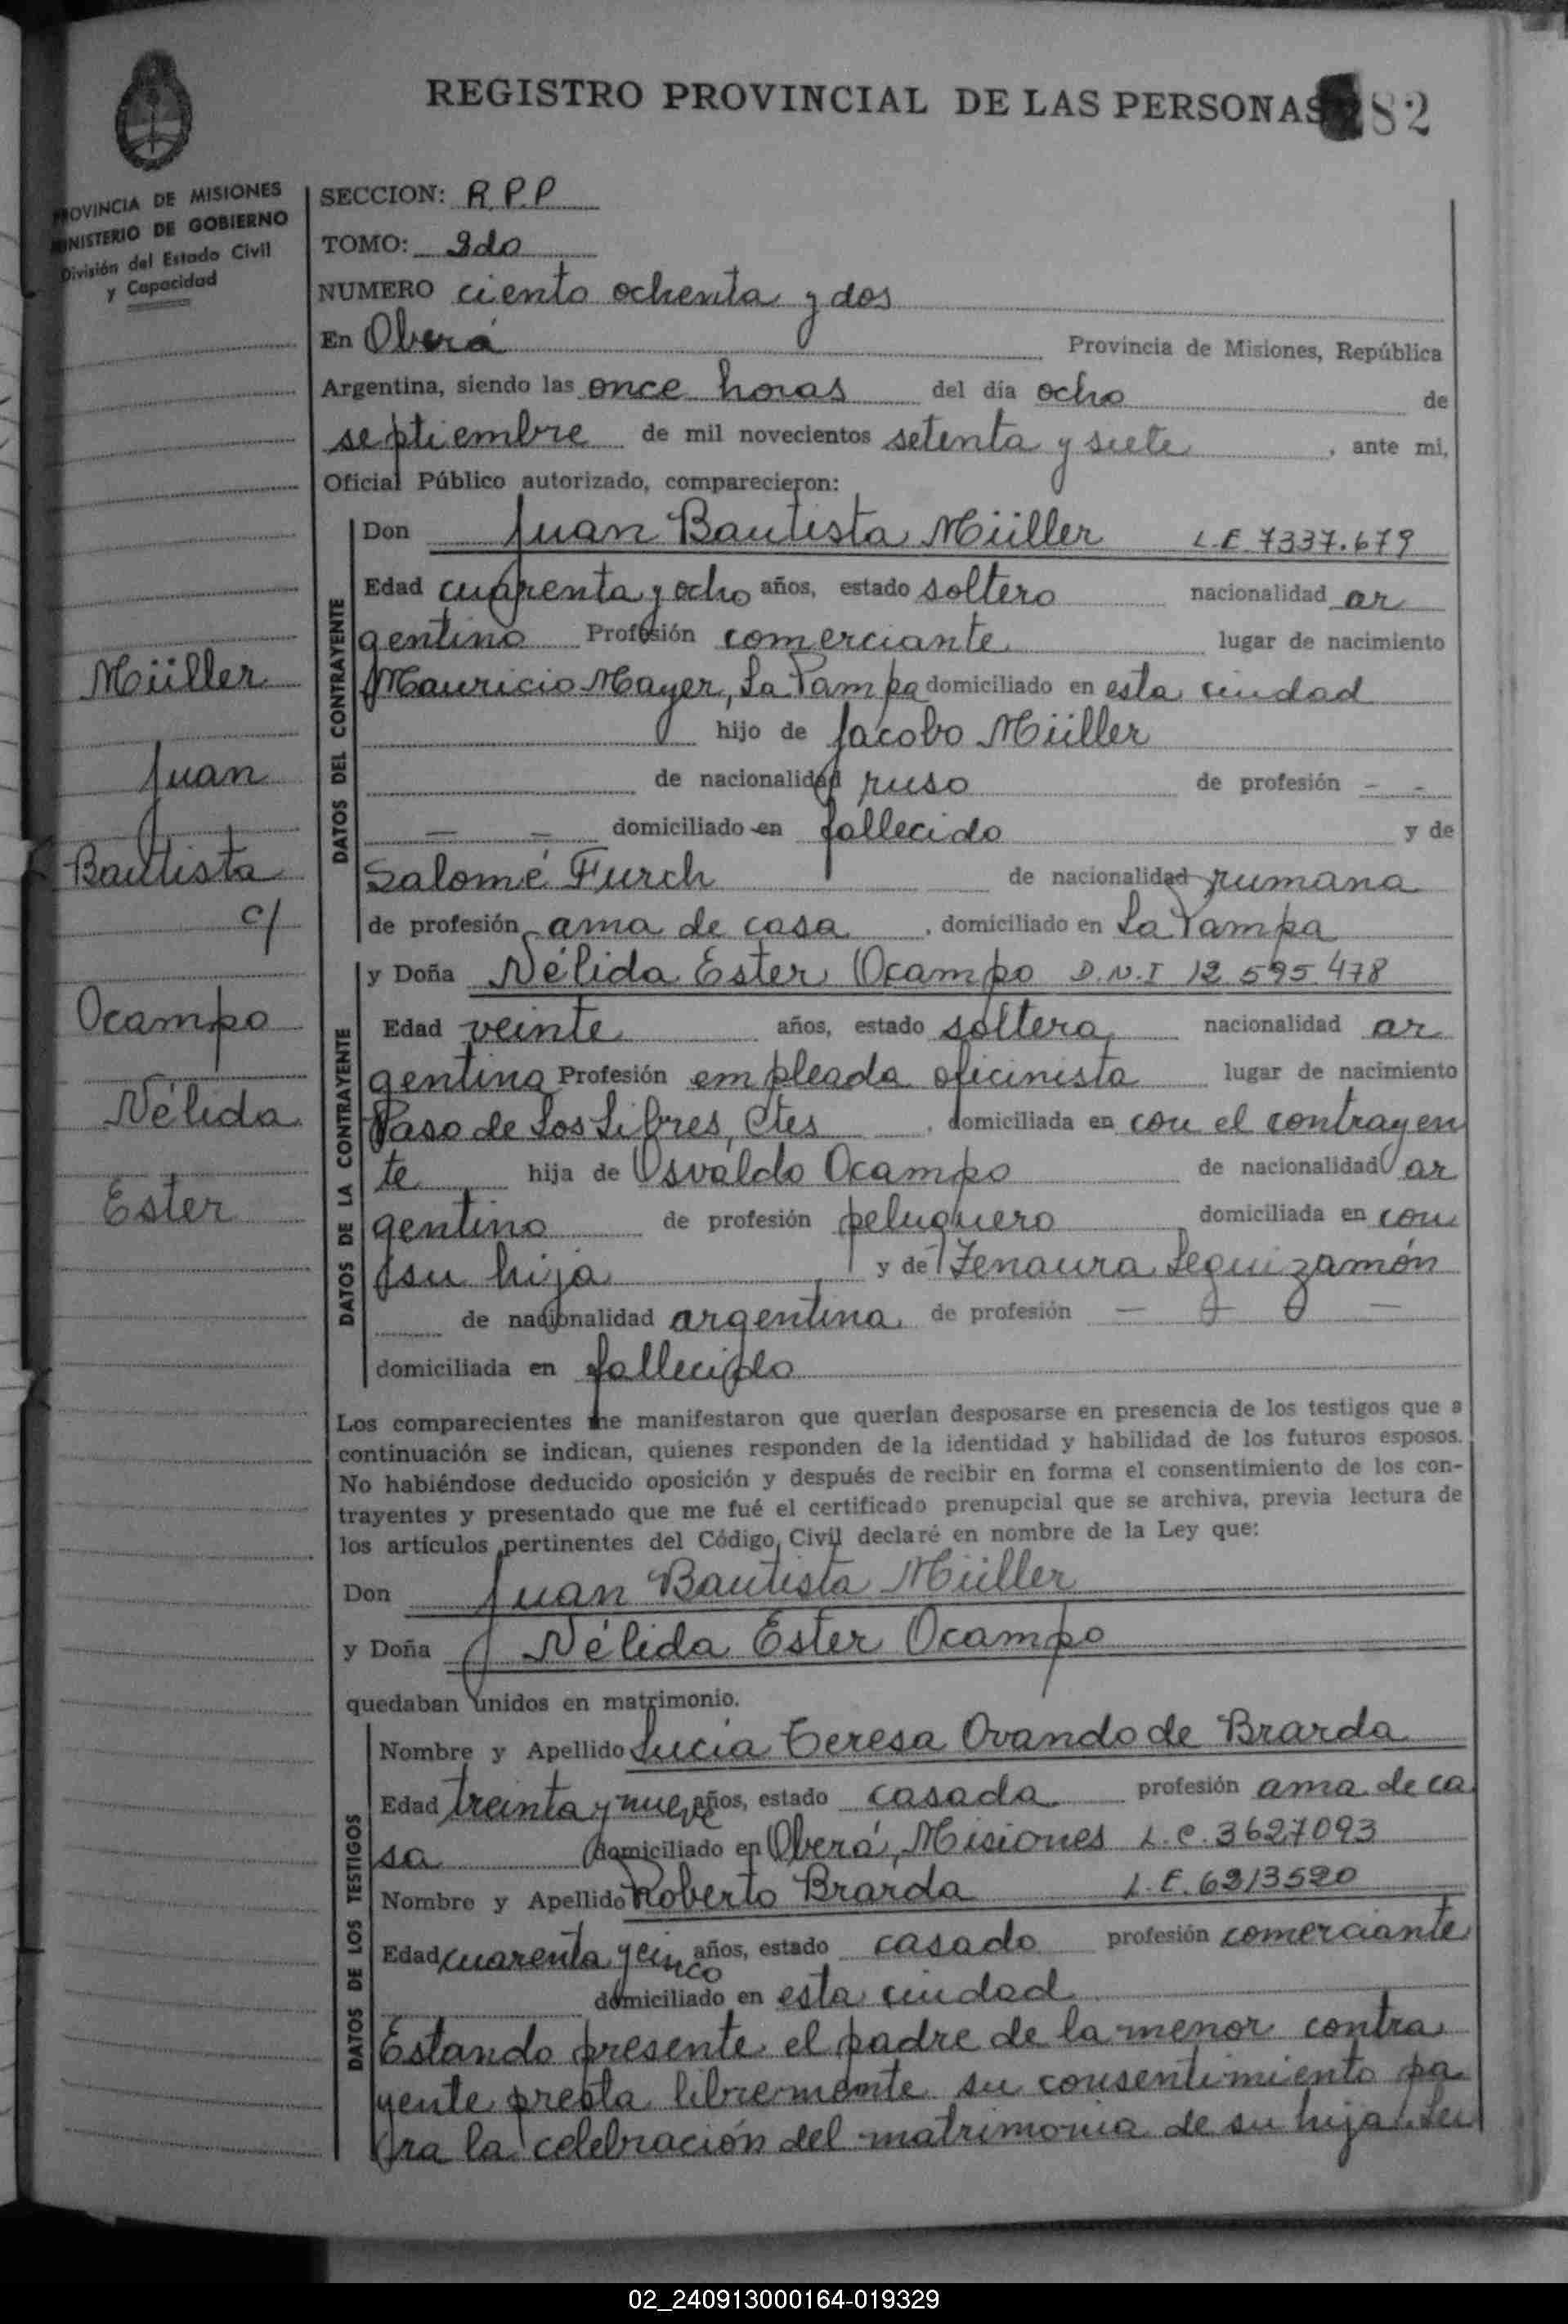 REGISTRO PROVINCIAL DE LAS PERSONAS 82
PROVINCIA DE MISIONES
MINISTERIO DE GOBIERNO
División del Estado Civil
y Capacidad
SECCION: R.P.P
TOMO: 2do
NUMERO ciento ochenta y dos
En Oberá Provincia de Misiones, República
Argentina, siendo las once horas del día ocho de
septiembre de mil novecientos setenta y siete, ante mi,
Oficial Público autorizado, comparecieron:
Müller
Juan
Bautista
c/
Ocampo
Nélida
Ester
DATOS DEL CONTRAYENTE
Don Juan Bautista Müller L.E. 7337.679
Edad cuarenta y ocho años, estado soltero nacionalidad ar
gentino Profesión comerciante lugar de nacimiento
Mauricio Mayer, La Pampa domiciliado en esta ciudad
hijo de Jacobo Müller
de nacionalidad ruso de profesión - -
— — domiciliado en fallecido y de
Salomé Furch de nacionalidad rumana
de profesión ama de casa, domiciliado en La Pampa
DATOS DE LA CONTRAYENTE
y Doña Nélida Ester Ocampo D.N.I 12.595.478
Edad veinte años, estado soltera nacionalidad ar
gentina Profesión empleada oficinista lugar de nacimiento
Paso de Los Libres, Ctes, domiciliada en con el contrayen
te hija de Osvaldo Ocampo de nacionalidad ar
gentino de profesión peluquero domiciliada en con
su hija y de Zenaura Leguizamón
de nacionalidad argentina de profesión — 0 0 —
domiciliada en fallecido
Los comparecientes me manifestaron que querían desposarse en presencia de los testigos que a
continuación se indican, quienes responden de la identidad y habilidad de los futuros esposos.
No habiéndose deducido oposición y después de recibir en forma el consentimiento de los con-
trayentes y presentado que me fué el certificado prenupcial que se archiva, previa lectura de
los artículos pertinentes del Código Civil declaré en nombre de la Ley que:
Don Juan Bautista Müller
y Doña Nélida Ester Ocampo
quedaban unidos en matrimonio.
DATOS DE LOS TESTIGOS
Nombre y Apellido Lucia Teresa Ovando de Brarda
Edad treinta y nueve años, estado casada profesión ama de ca
sa domiciliado en Oberá, Misiones L.C. 3627093
Nombre y Apellido Roberto Brarda L.E. 6213520
Edad cuarenta y cinco años, estado casado profesión comerciante
domiciliado en esta ciudad
Estando presente el padre de la menor contra
yente presta libremente su consentimiento pa
ra la celebración del matrimonio de su hija. Lei
02_240913000164-019329